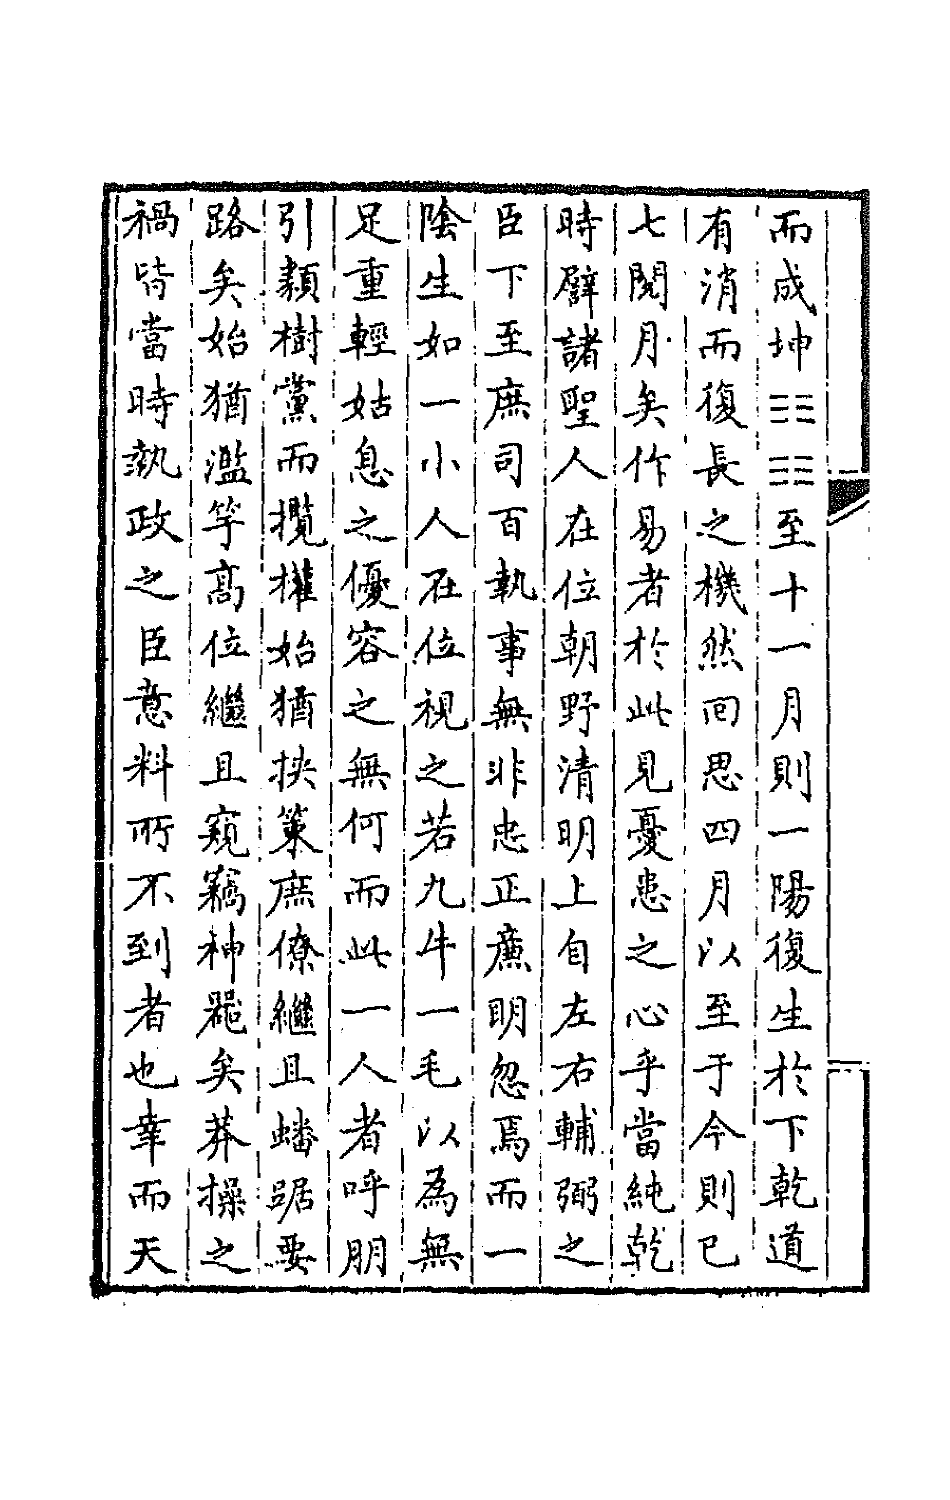 而成坤☷☷至十一月則一陽復生於下乾道
有消而復長之機然囘思四月以至于今則已
七閱月矣作易者於此見憂患之心乎當純乾
時譬諸聖人在位朝野清明上自左右輔弼之
臣下至庶司百執事無非忠正亷明忽焉而一
陰生如一小人在位視之若九牛一毛以為無
足重輕姑息之優容之無何而此一人者呼朋
引類樹黨而攬權始猶挾策庶僚繼且蟠踞要
路矣始猶濫竽髙位繼且窺竊神器矣莽操之
禍皆當時執政之臣意料所不到者也幸而天